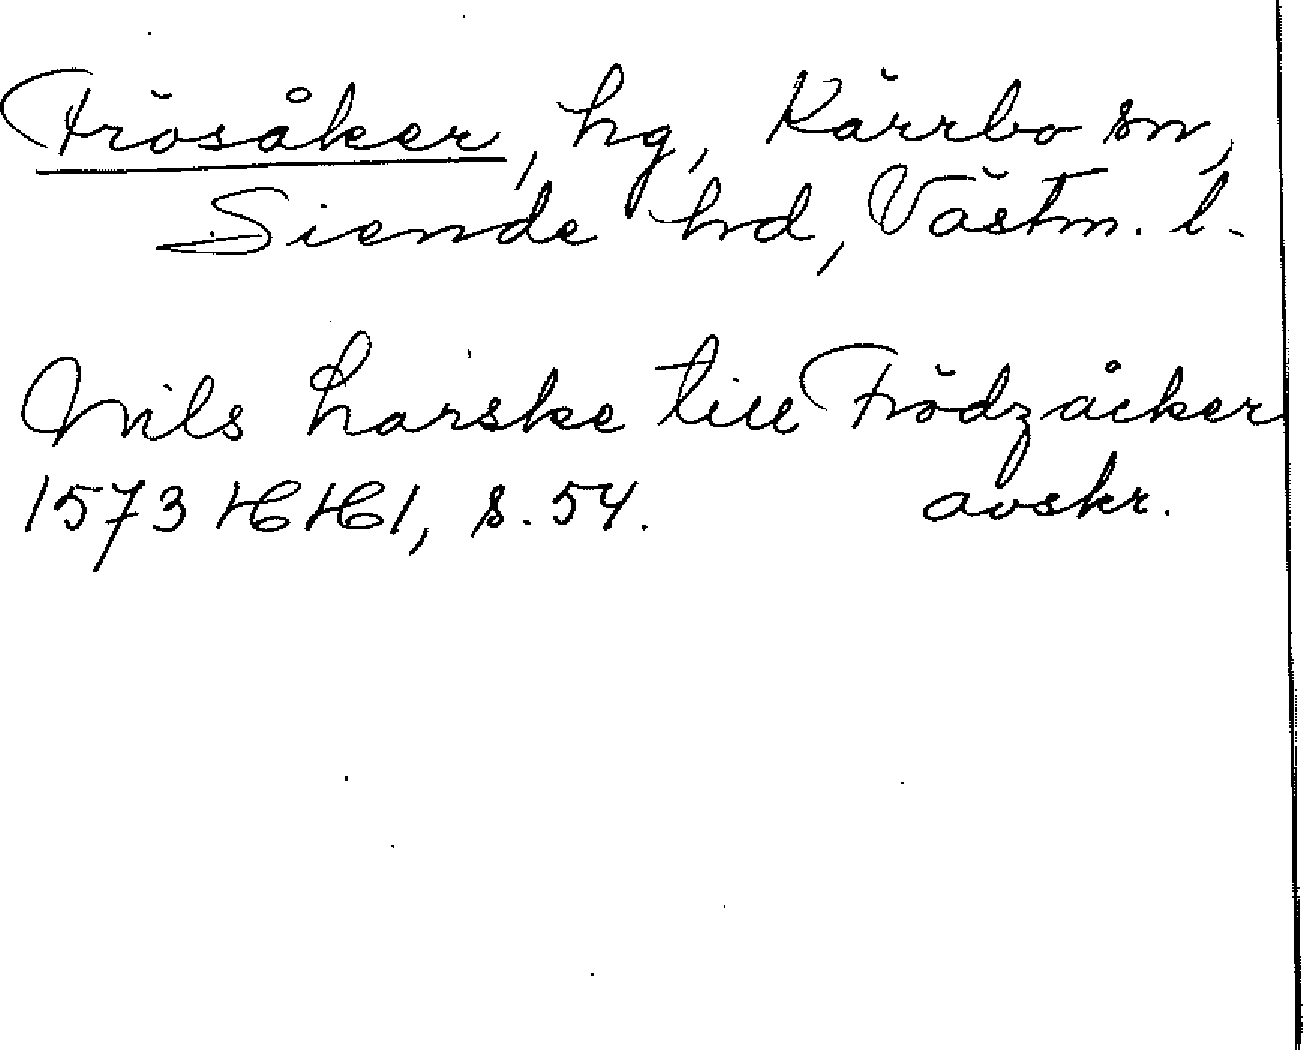 Frösåker, hg, Kärrbo sn,
Siende hd, Västm. l.
Nils harske till Frödzåcker
1573 HH1, s. 54. avskr.